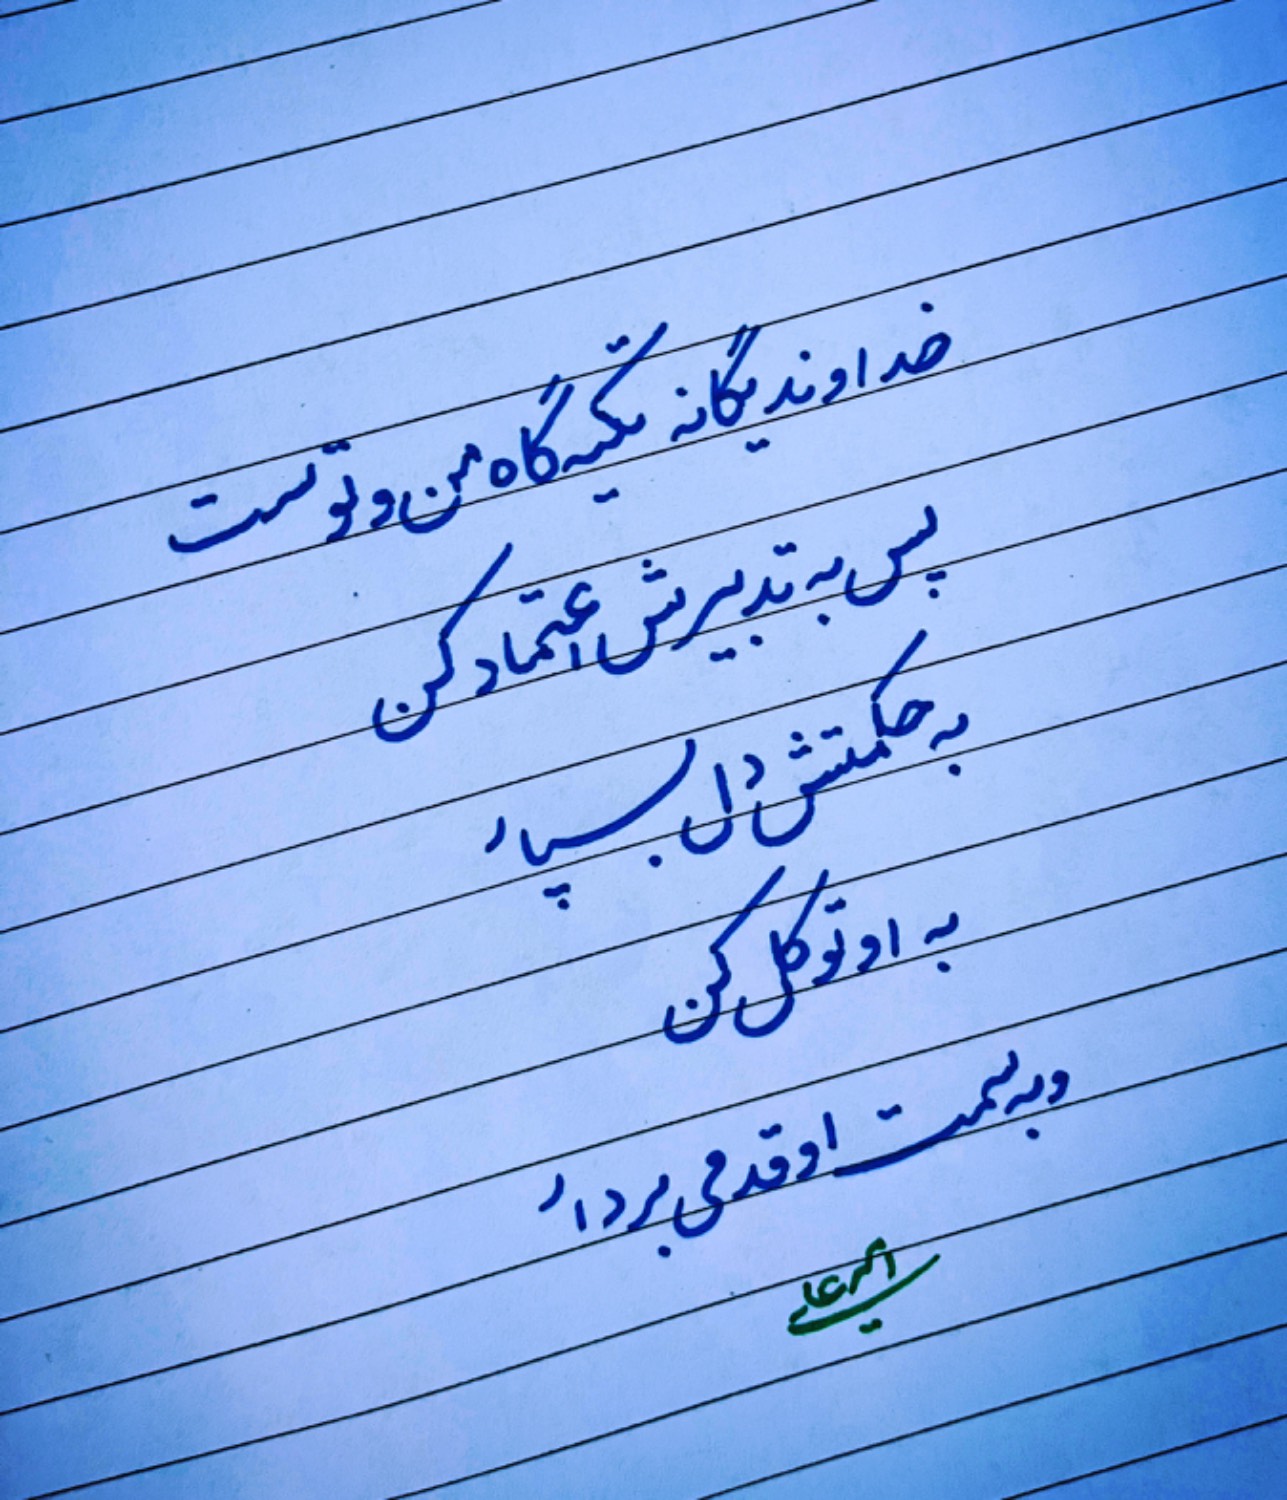 خداوند یگانه تکیه گاه من و توست
پس به تدبیرش اعتماد کن
به حکمتش دل بسپار
به او توکل کن
و به سمت او قدمی بردار